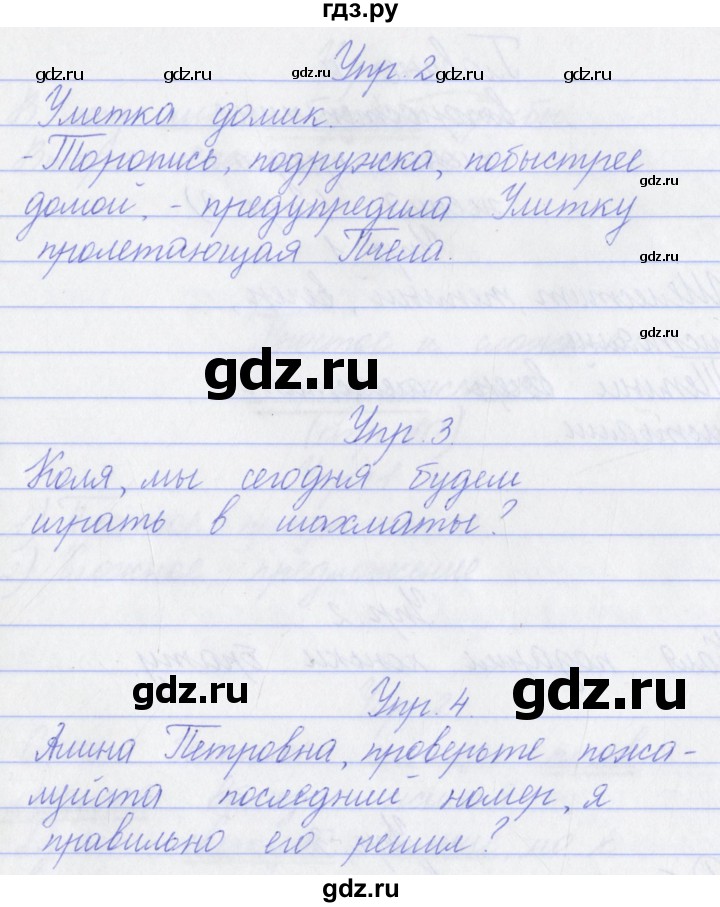 гдз.ру
Упр. 2
gdz.ru gdz.ru gdz.ru gdz.ru gdz.ru
Улитка домик.
-Торопись, подружка, побыстрее
gdz.ru
домой, - предупредила Улитку
пролетающая Пчела.
gdz.ru
gdz.ru
gdz.ru
Упр. 3.
Коля, мы сегодня будем
играть в шахматы?
gdz.ru
gdz.ru
Упр. 4.
Алина Петровна, проверьте пожа-
луйста последний номер, я
правильно его решил?
gdz.ru